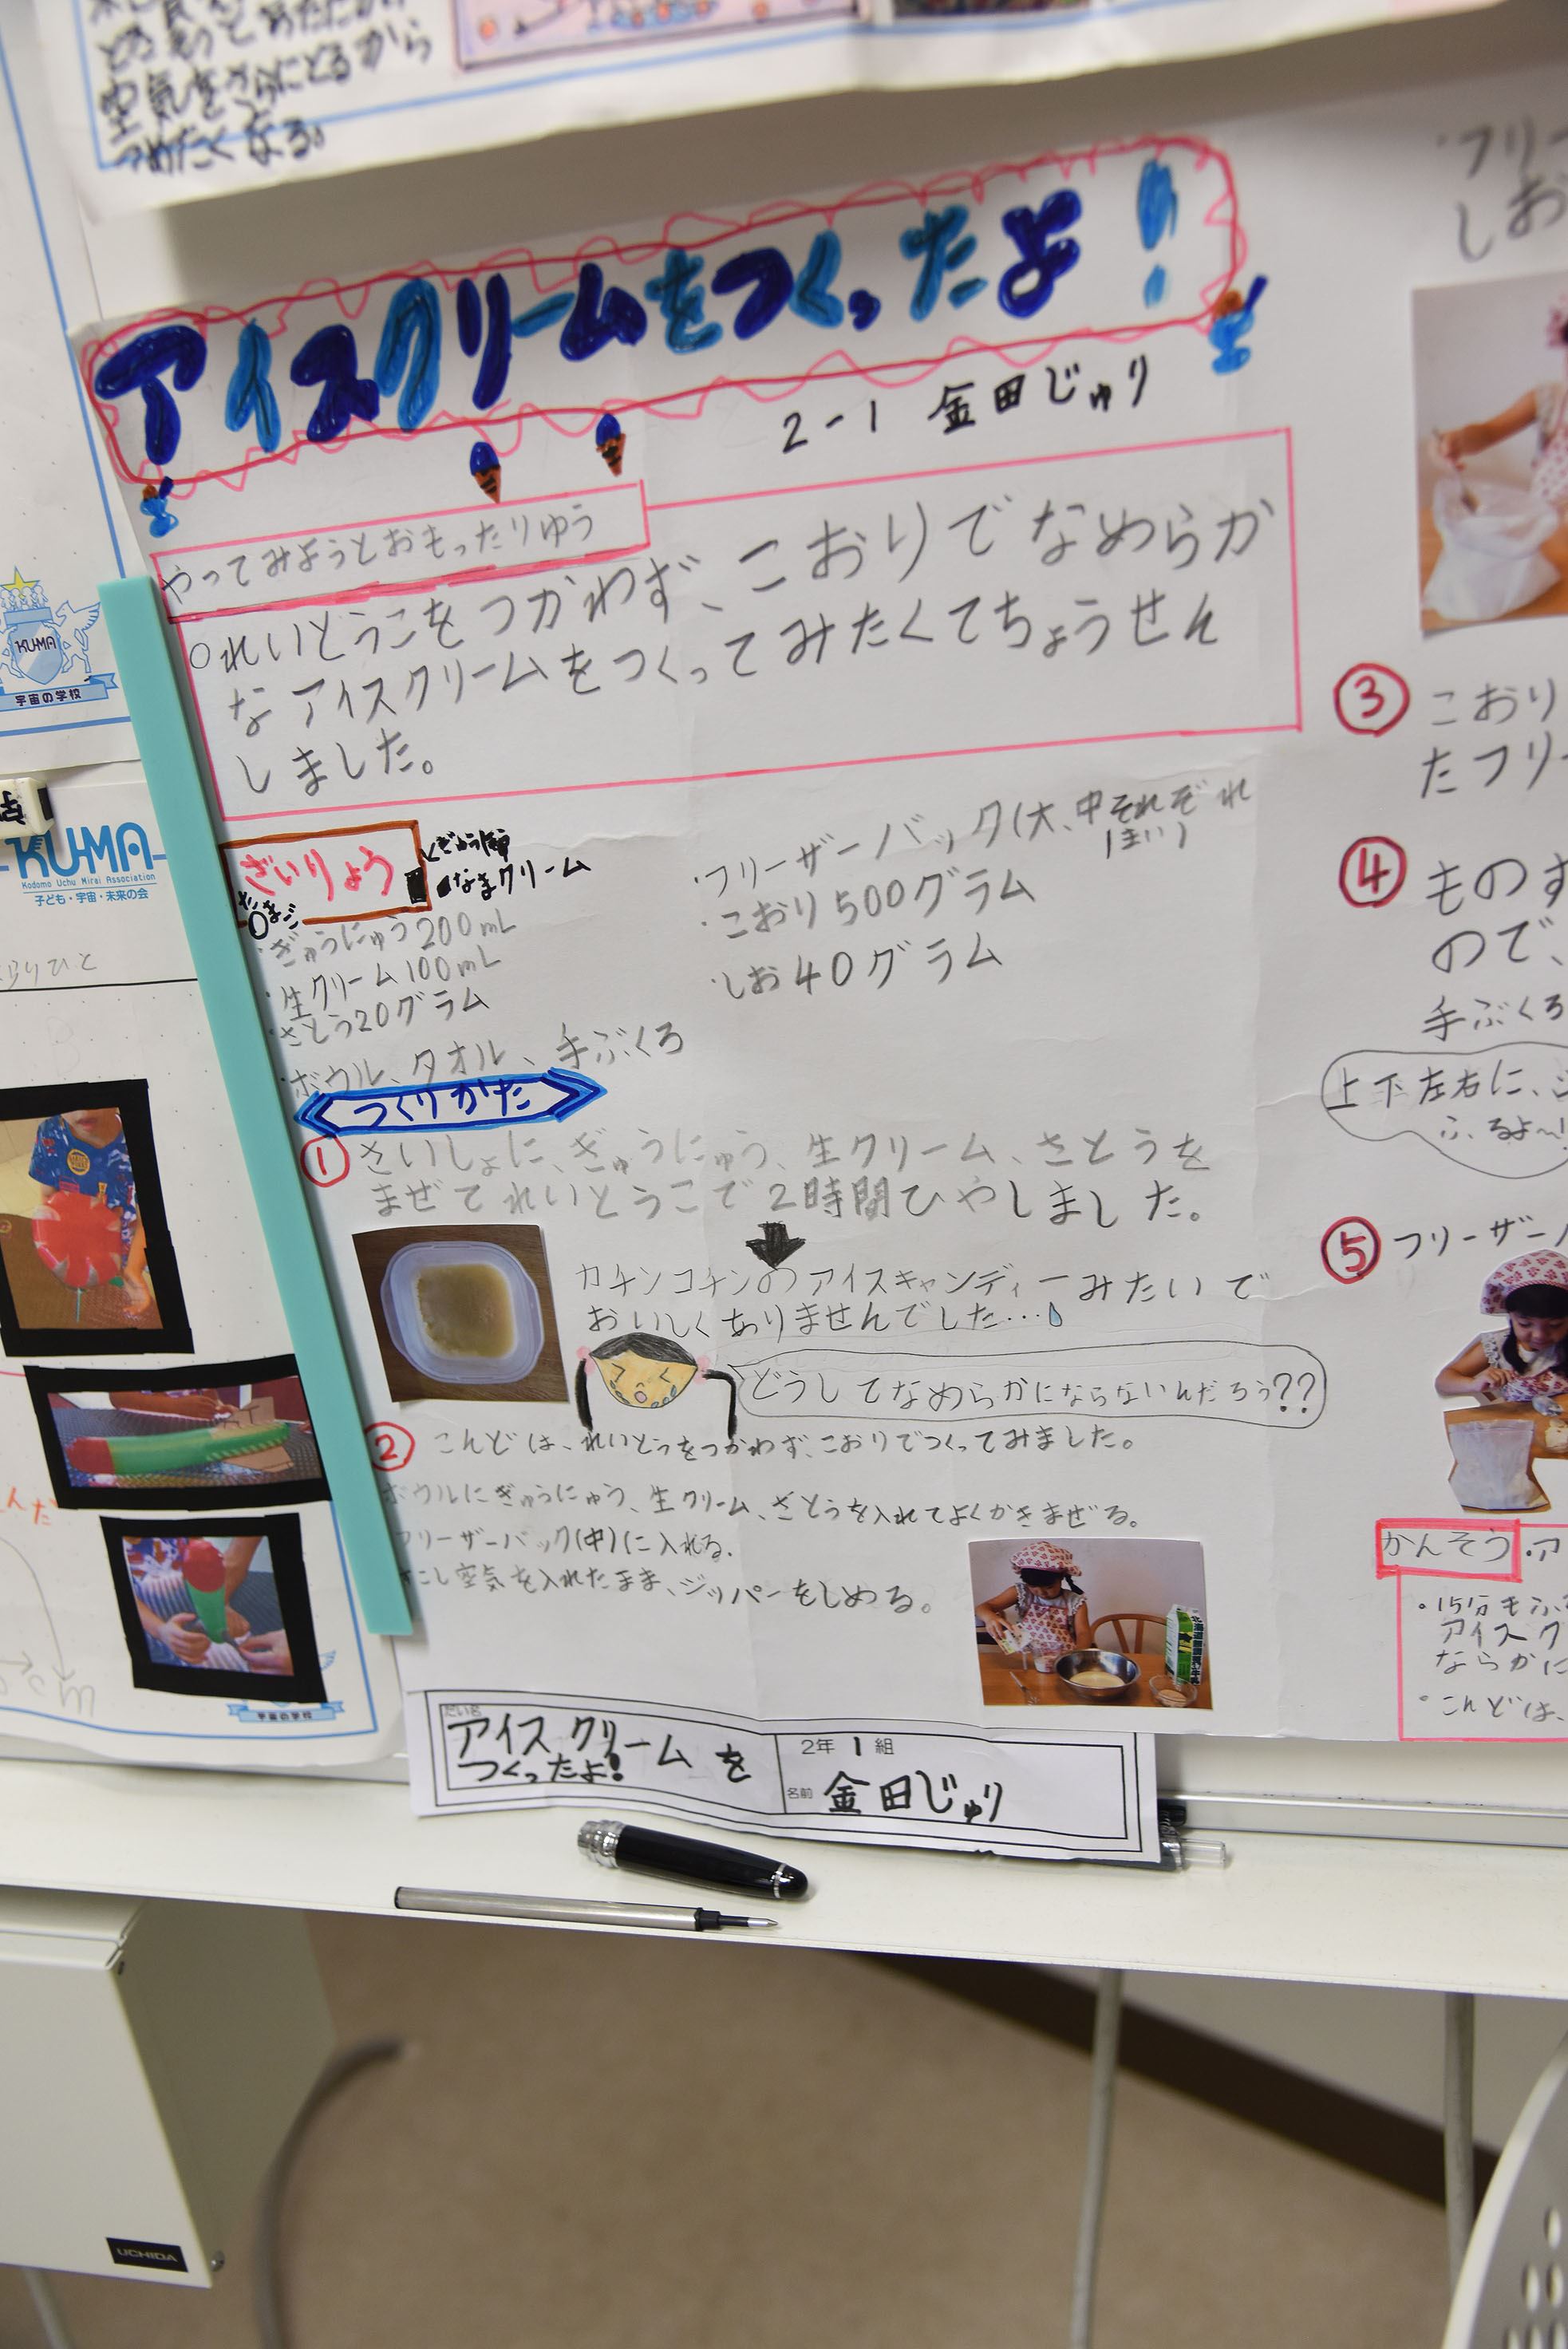 空気をさらにとるから
つめたくなる。
アイスクリームをつくったよ!
2-1 金田じゅり
やってみようとおもったりゆう
○れいとうこをつかわず、こおりでなめらか
なアイスクリームをつくってみたくてちょうせん
しました。
ざいりょう
なまクリーム
・ぎゅうにゅう200mL
・生クリーム100mL
・さとう20グラム
・ボウル、タオル、手ぶくろ
・フリーザーバック(大、中それぞれ
1まい)
・こおり500グラム
・しお40グラム
つくりかた
① さいしょに、ぎゅうにゅう、生クリーム、さとうを
まぜてれいとうこで2時間ひやしました。
カチンコチンのアイスキャンディーみたいで
おいしくありませんでした…
どうしてなめらかにならないんだろう??
② こんどは、れいとうをつかわず、こおりでつくってみました。
ボウルにぎゅうにゅう、生クリーム、さとうを入れてよくかきまぜる。
フリーザーバック(中)に入れる.
すこし空気を入れたまま、ジッパーをしめる。
・フリー
しお
③ こおり
たフリー
④ ものす
ので、
手ぶくろ
上下左右に、
ふるよ〜!
⑤ フリーザー
かんそう
・ア
・15分もふ
アイスク
ならかに
・こんどは、
だい名
アイスクリームを
つくったよ!
2年 1 組
名前 金田じゅり
KU-MA
宇宙の学校
KU-MA
Kodomo Uchu Mirai Association
子ども・宇宙・未来の会
宇宙の学校
UCHIDA